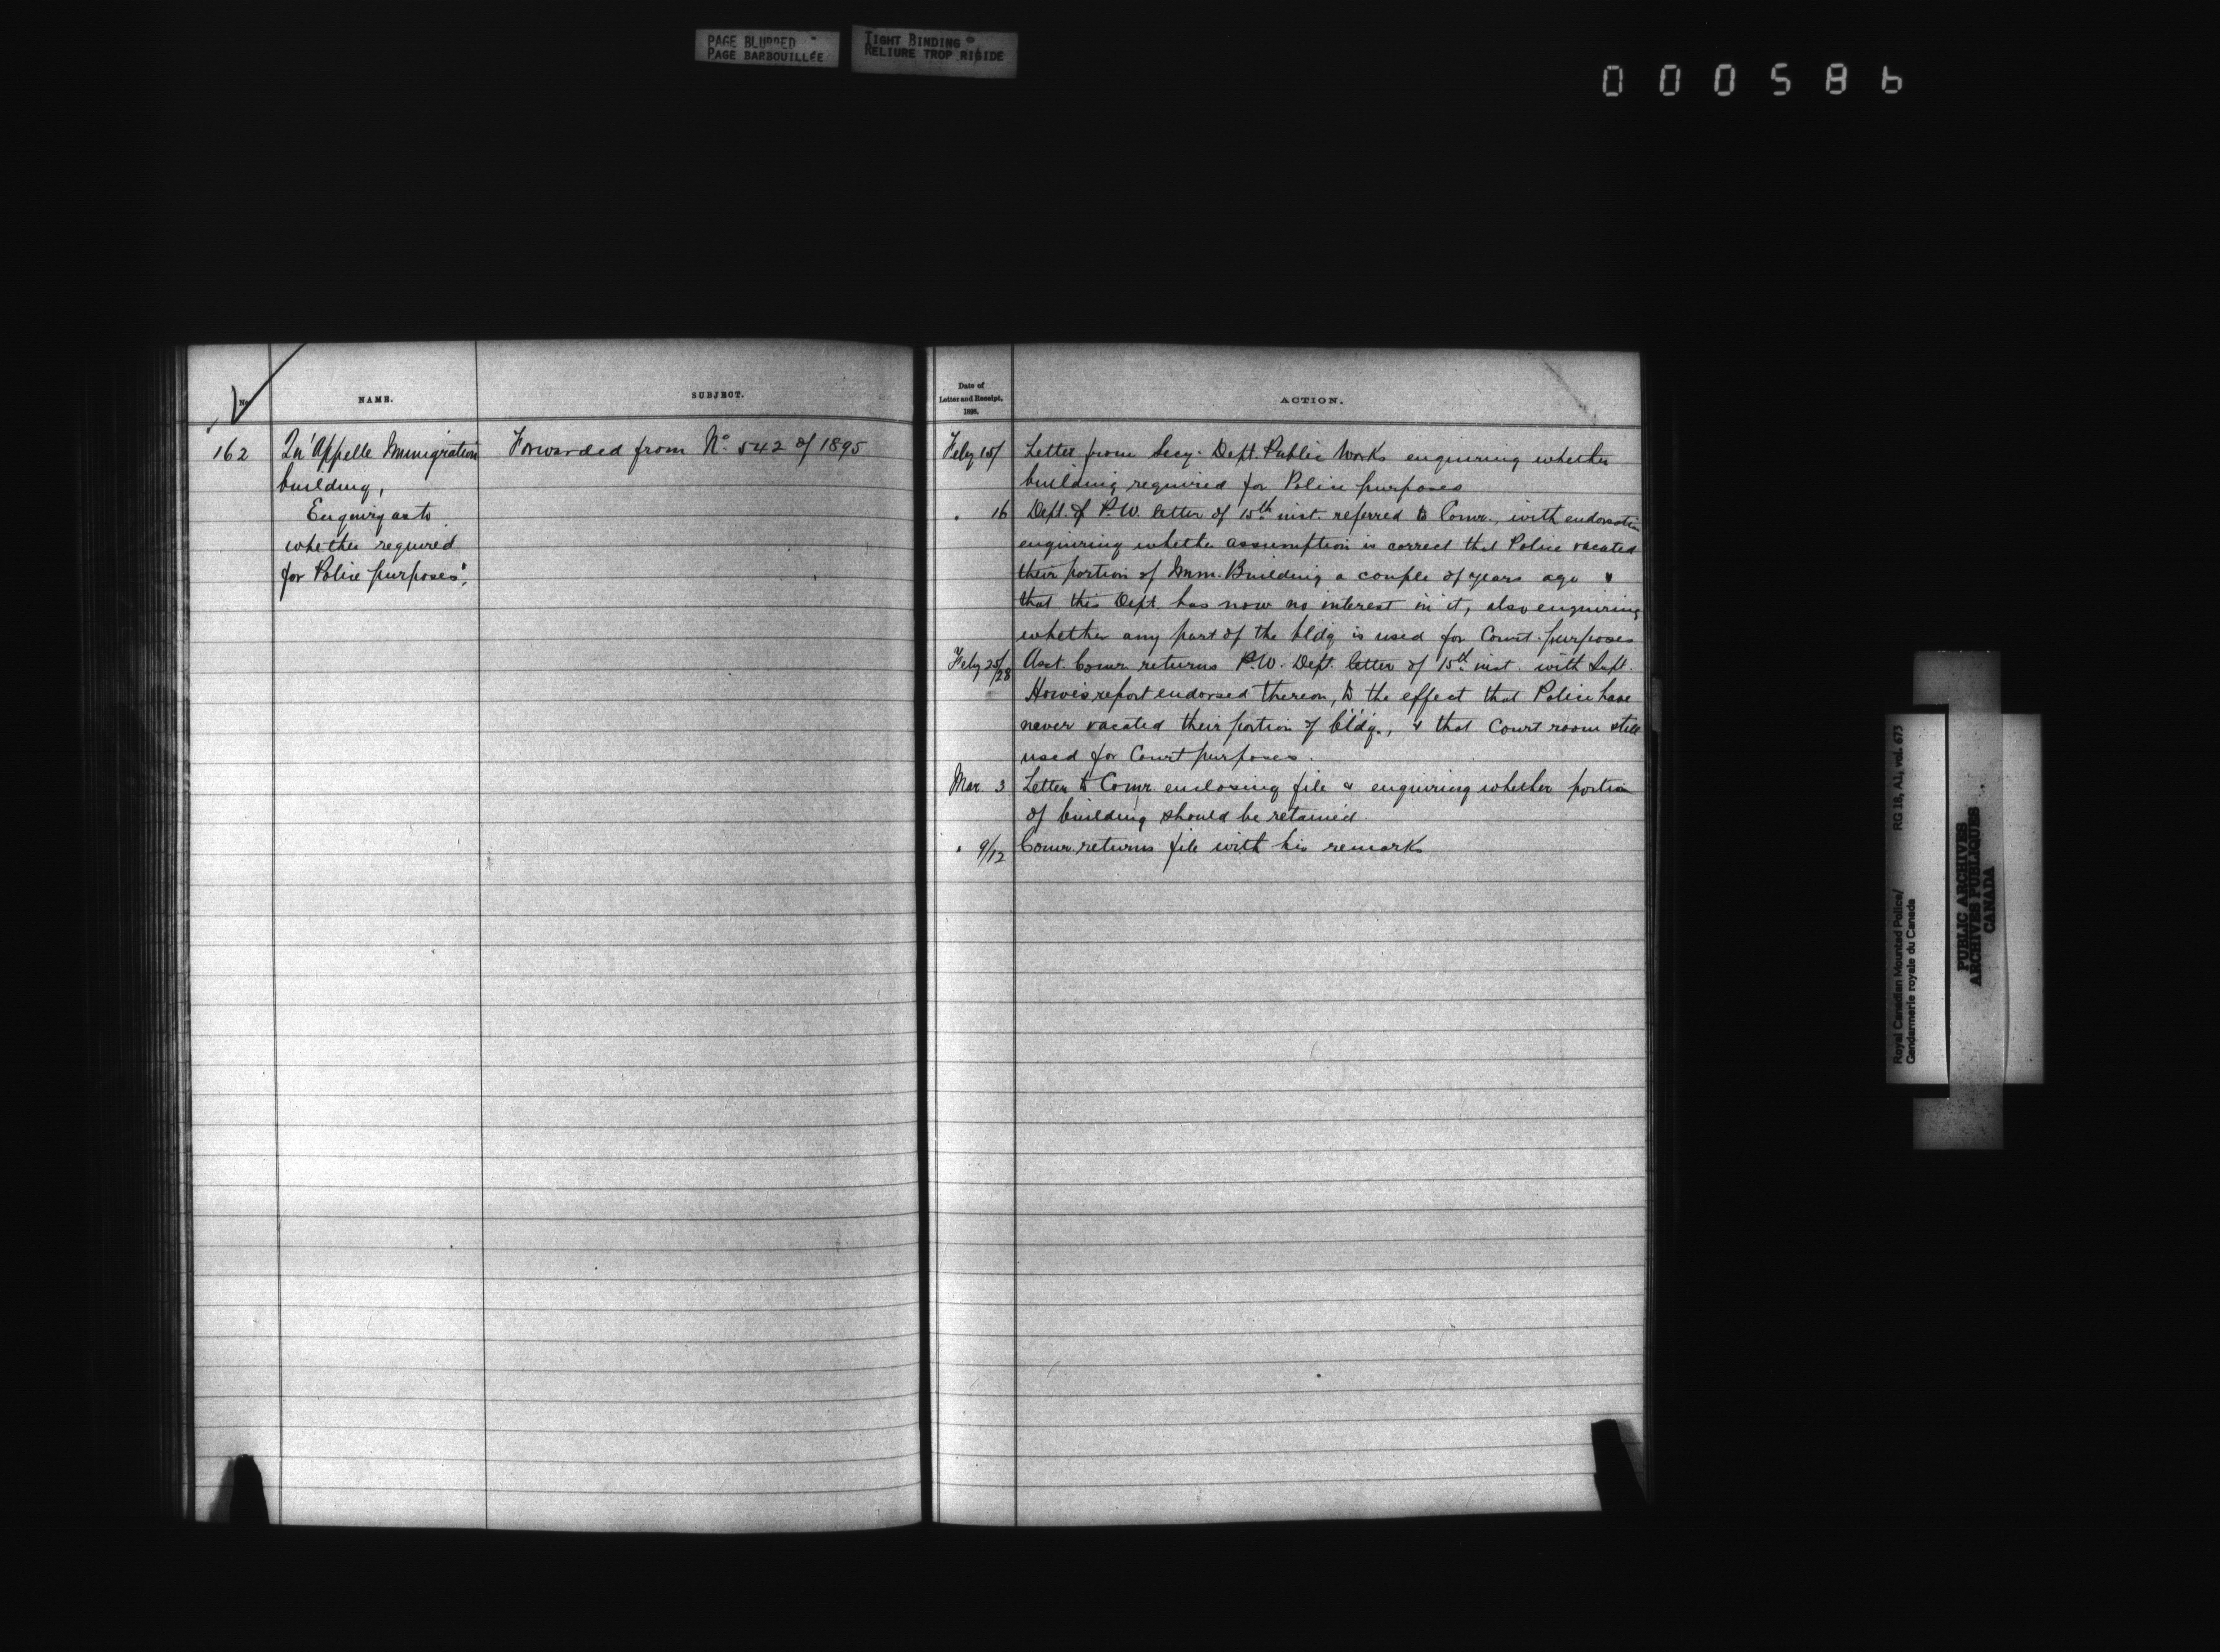 PAGE BLURRED
PAGE BARBOUILLÉE
TIGHT BINDING
RELIURE TROP RIGIDE
000586
No.
NAME.
SUBJECT.
162
Qu'Appelle Immigration
building,
Enquiry as to
whether required
for Police purposes.
Forwarded from No. 542 of 1895
Date of
Letter and Receipt,
1896.
ACTION.
Feby 15/ Letter from Secy. Dept. Public Works enquiring whether
building required for Police purposes
" 16 Dept. of P.W. letter of 15th inst. referred to Comr., with endorsation
enquiring whether assumption is correct that Police vacated
their portion of Imm. Building a couple of years ago &
that this Dept. has now no interest in it, also enquiring
whether any part of the bldg is used for Court purposes
Feby 25/28 Asst. Comr. returns P.W. Dept. letter of 15th inst. with Supt.
Howe's report endorsed thereon, to the effect that Police have
never vacated their portion of bldg., & that Court room still
used for Court purposes.
Mar. 3 Letter to Comr. enclosing file & enquiring whether portion
of building should be retained.
" 9/12 Comr. returns file with his remarks
Royal Canadian Mounted Police/ RG 18, A1, vol. 673
Gendarmerie royale du Canada
PUBLIC ARCHIVES
ARCHIVES PUBLIQUES
CANADA